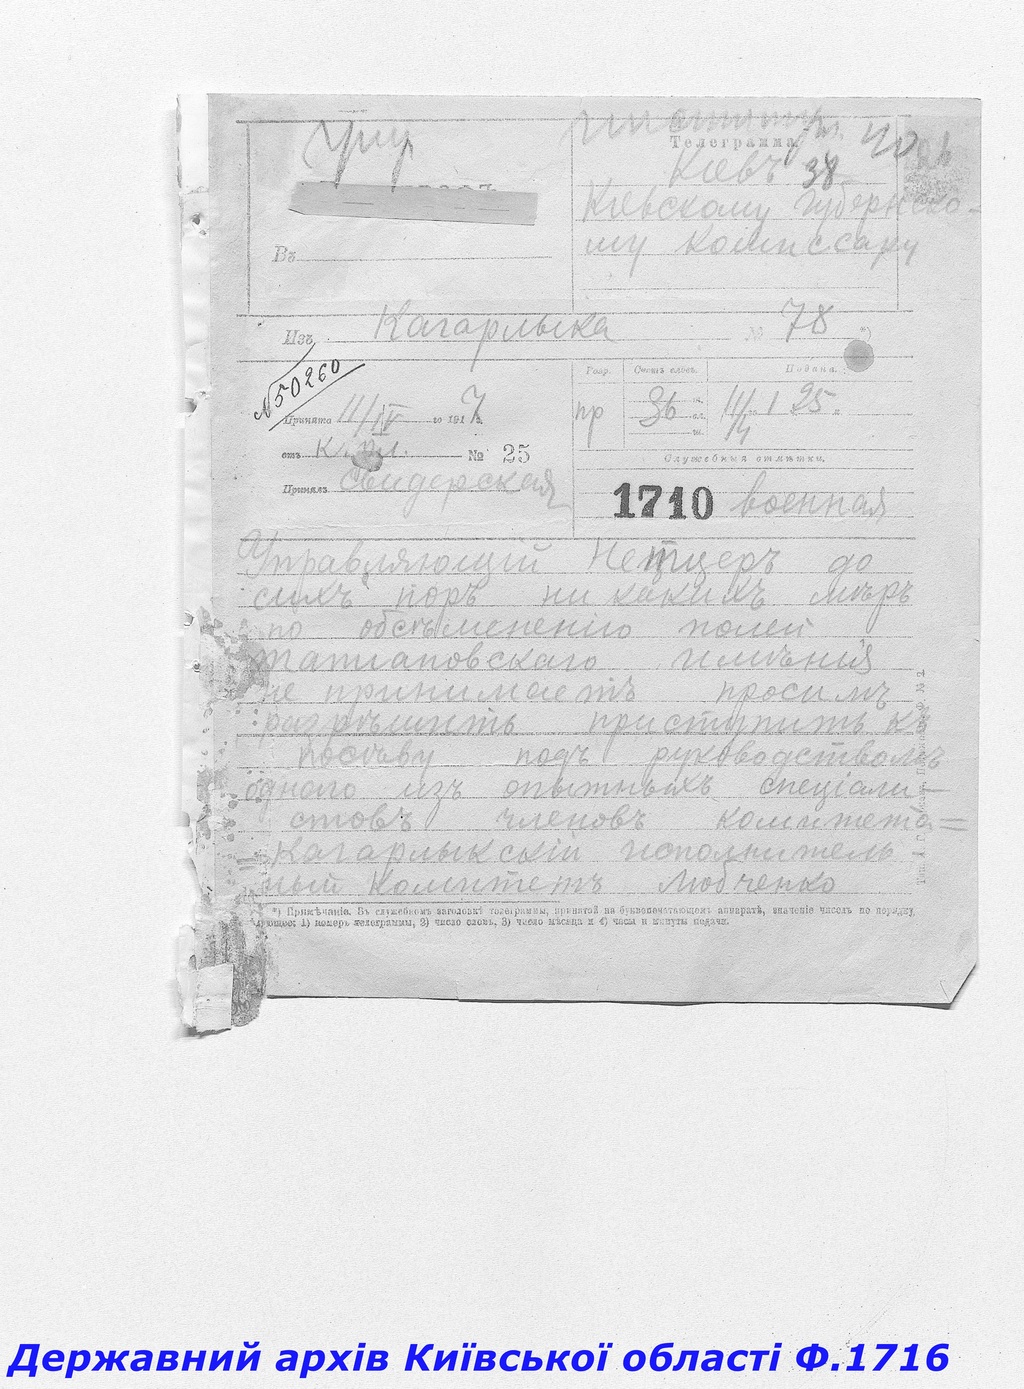 Телеграмма.
Кіевъ 38
Кіевскому Губернско-
му комиссару
Въ
Изъ Кагарлыка № 78 *)
№50260
Разр. Счетъ словъ. Подана.
Принято 11/IV го 1917 г.
пр 36 11/4 1 25
отъ № 25
Служебныя отмѣтки.
Принялъ Свидерская
1710 военная
Управляющій Нетцеръ до
сихъ поръ ни какихъ мѣръ
по обсѣмененію полей
имѣнія
не принимаетъ просимъ
разрѣшить приступить къ
посѣву подъ руководствомъ
одного изъ опытныхъ спеціали-
стовъ членовъ комитета=
Кагарлыкскій исполнитель
ный комитетъ Любченко
*) Примѣчаніе. Въ служебномъ заголовкѣ телеграммы, принятой на буквопечатающемъ аппаратѣ, значеніе чиселъ по порядку
1) номеръ телеграммы, 2) число словъ, 3) число мѣсяца и 4) часы и минуты подачи.
Державний архів Київської області Ф.1716